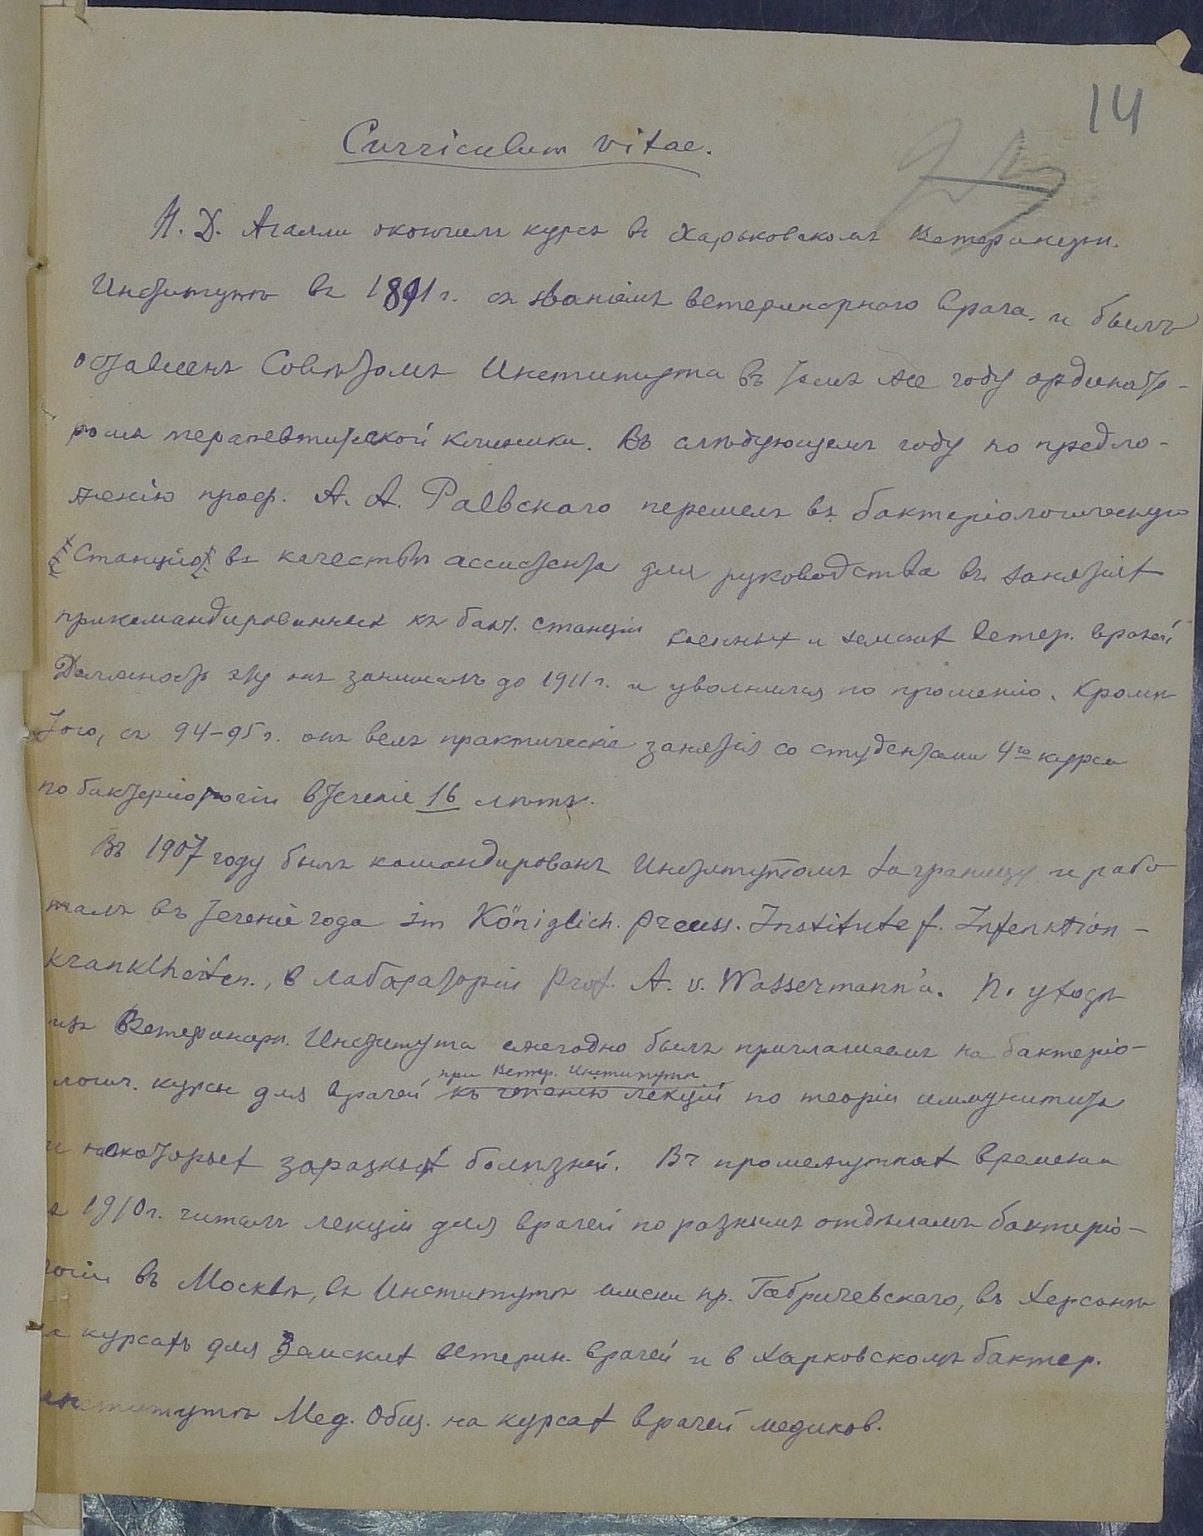 14
Curriculum vitae.
Н. Д. Агалли окончилъ курсъ въ Харьковскомъ Ветеринарн.
Институтѣ въ 1891 г. съ званіемъ ветеринарнаго врача, и былъ
оставленъ Совѣтомъ Института въ томъ же году ордината-
ромъ терапевтической клиники. Въ слѣдующемъ году по предло-
женію проф. А. А. Раевскаго перешелъ въ бактеріологическую
Станцію въ качествѣ ассистента для руководства въ занятіях
прикомандированных къ бакт. станціи военных и земских ветер. врачей
Должность эту онъ занималъ до 1911 г. и уволился по прошенію. Кромѣ
того, съ 94-95 г. онъ велъ практическіе занятія со студентами 4го курса
по бактеріологіи втеченіе 16 лѣтъ.
Въ 1907 году былъ командированъ Институтомъ заграницу и рабо
талъ въ теченіе года im Königlich. preuss. Institute f. Infenktion-
kranklheiten., в лабораторіи Prof. A. v. Wassermann'а. По уходѣ
изъ Ветеринарн. Института ежегодно былъ приглашаемъ на бактеріо-
логич. курсы для врачей при Ветер. Институтѣ къ чтенію лекцій по теоріи иммунитета
и некоторых заразных болѣзней. Въ промежутках времени
с 1910 г. читалъ лекціи для врачей по разнымъ отдѣламъ бактеріо-
логіи въ Москвѣ, въ Институтѣ имени пр. Габричевскаго, въ Херсонѣ
на курсахъ для Земских ветерин. врачей и в Харковскомъ бактер.
институтѣ Мед. Общ. на курсах врачей медиков.